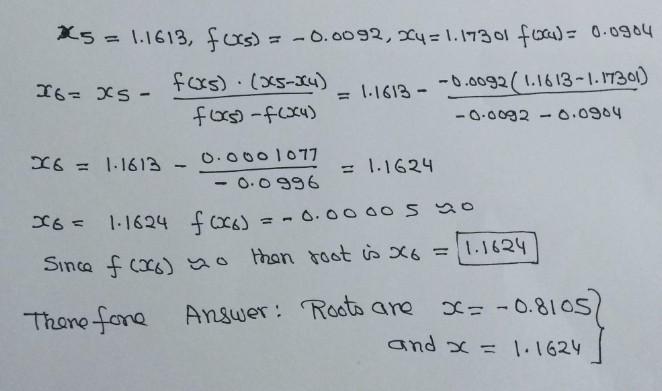 x5 = 1.1613, f(x5) = -0.0092, x4 = 1.17301 f(x4) = 0.0904
x6 = x5 - f(x5) · (x5-x4) / f(x5) - f(x4) = 1.1613 - -0.0092(1.1613-1.17301) / -0.0092 - 0.0904
x6 = 1.1613 - 0.0001077 / -0.0996 = 1.1624
x6 = 1.1624 f(x6) = -0.00005 ≈0
Since f(x6) ≈0 then root is x6 = 1.1624
Therefore Answer: Roots are x = -0.8105
and x = 1.1624